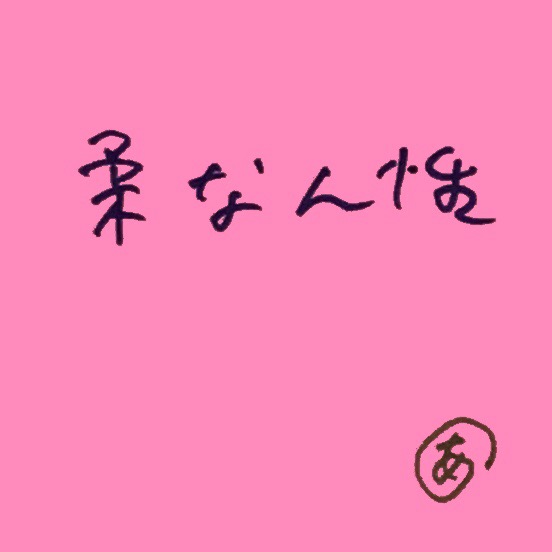 柔なん性
あ